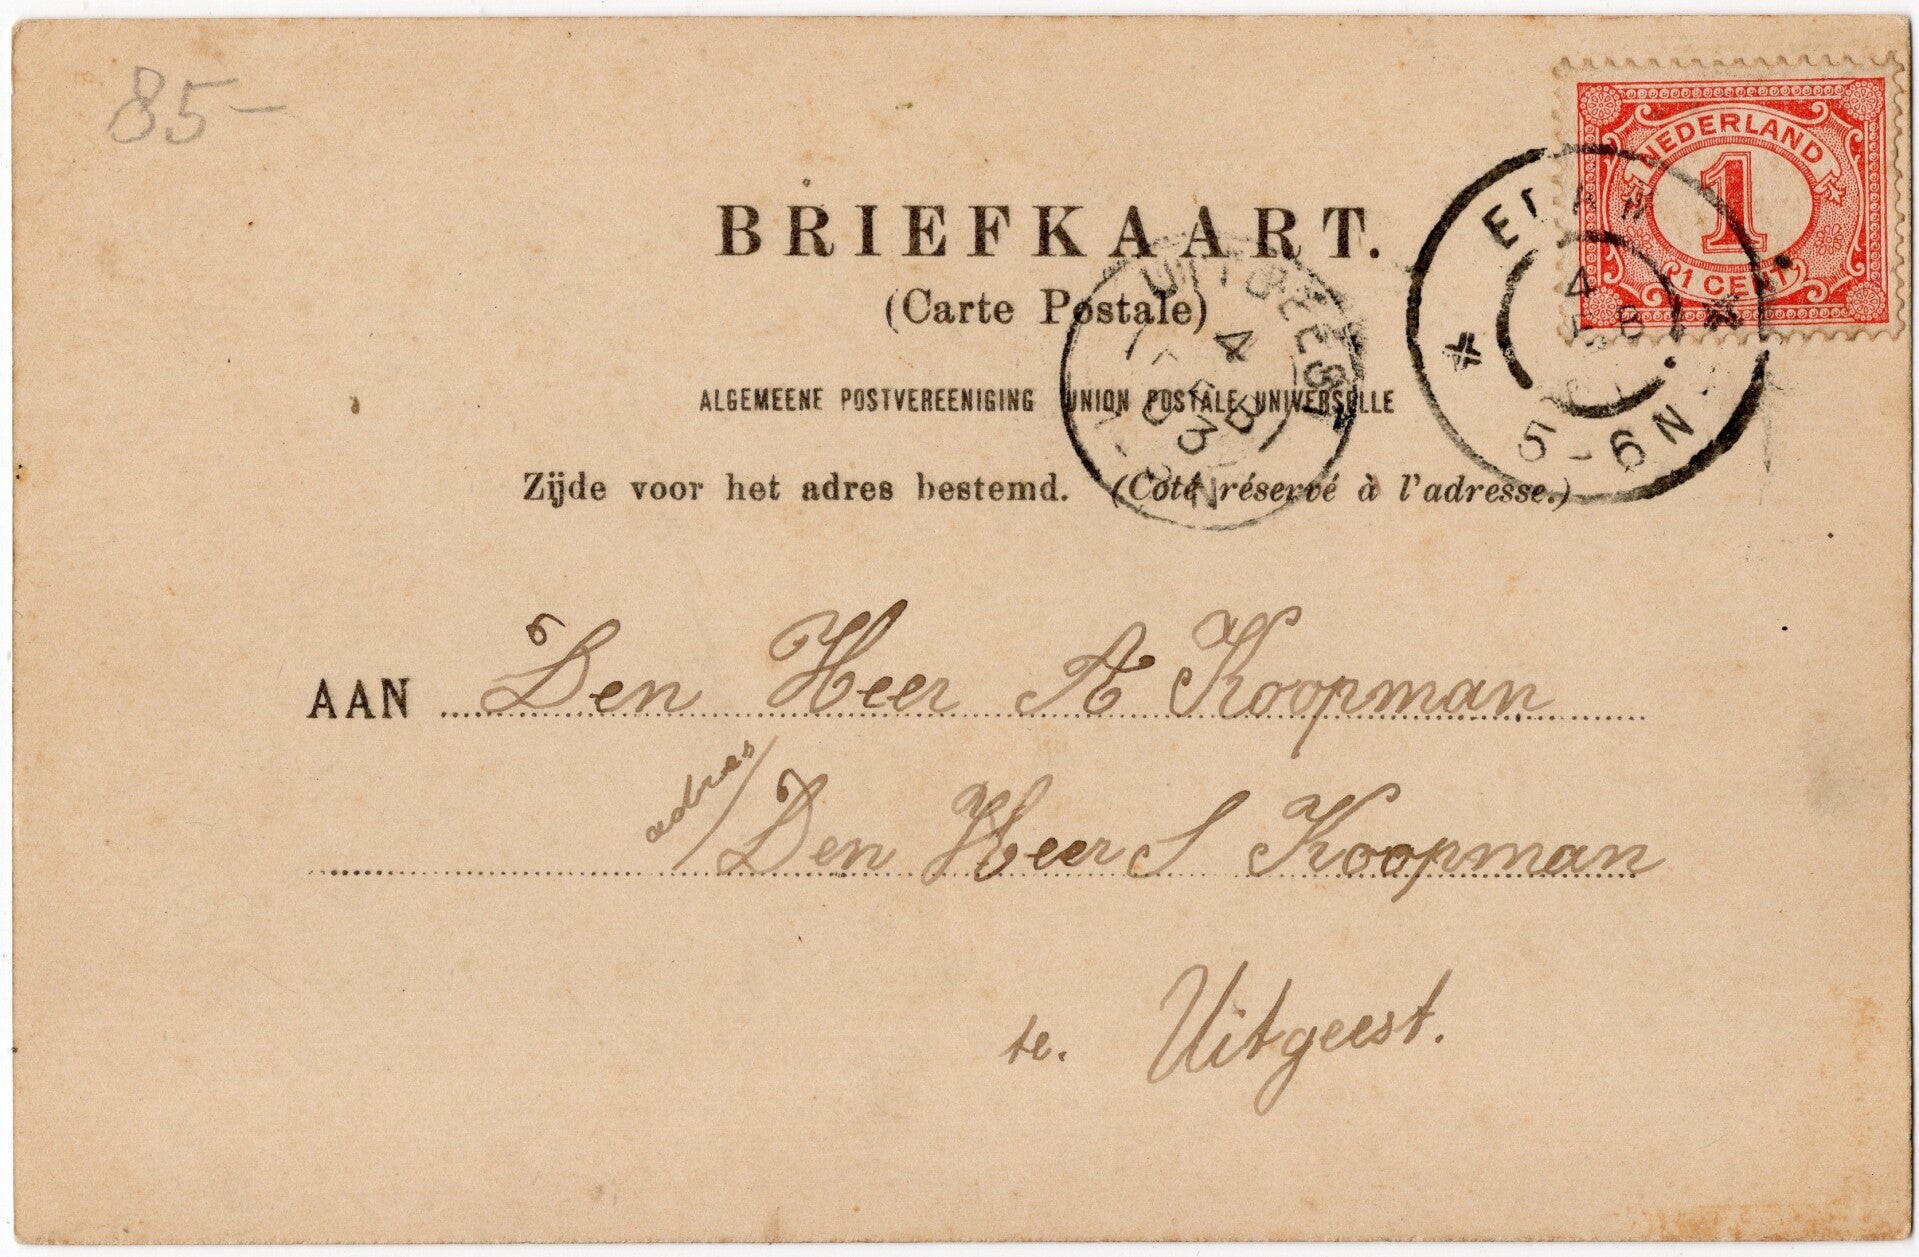 85-
NEDERLAND
1
1 CENT
BRIEFKAART.
(Carte Postale)
ALGEMEENE POSTVEREENIGING UNION POSTALE UNIVERSELLE
Zijde voor het adres bestemd. (Coté réservé à l'adresse.)
UITGEEST
4
FEB
03
EDAM
4
5-6N
AAN Den Heer A Koopman
adres/ Den Heer S Koopman
te. Uitgeest.